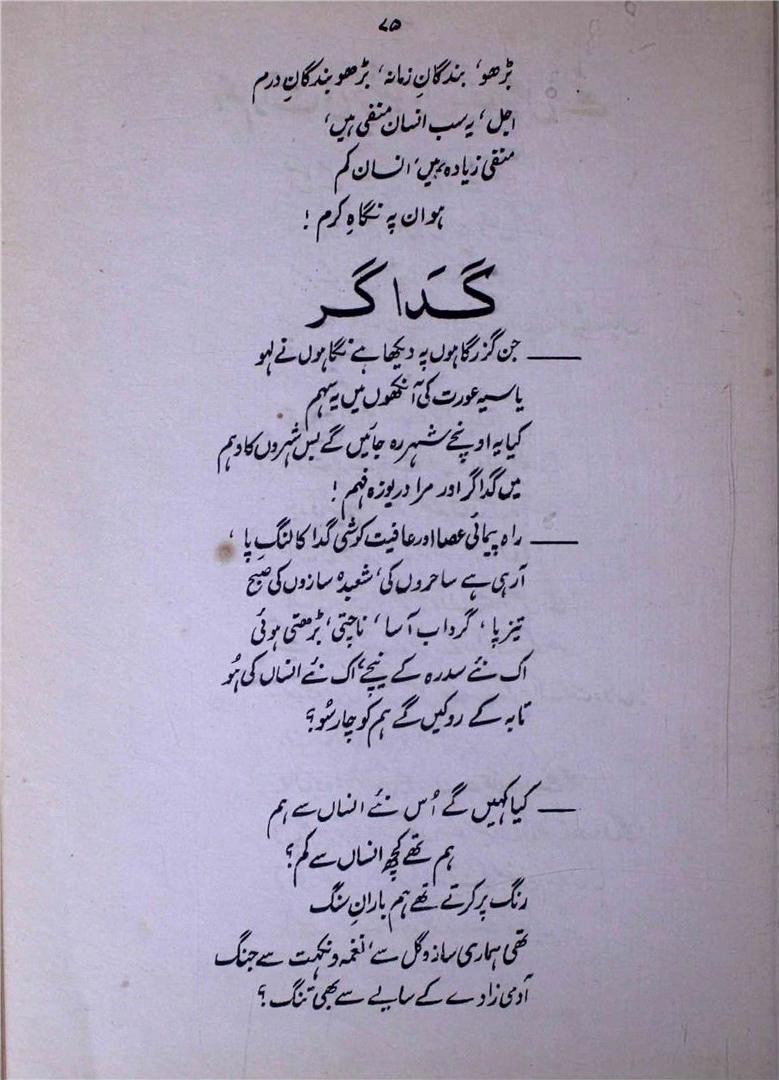 ۷۵
بڑھو، بندگانِ زمانہ، بڑھو بندگانِ درم
اجل، یہ سب انسان منفی ہیں،
منفی زیادہ ہیں، انسان کم
ہو ان پہ نگاہِ کرم !
گداگر
— جن گزرگاہوں پہ دیکھا ہے نگاہوں نے لہو
یا سیہ عورت کی آنکھوں میں یہ سہم
کیا یہ اونچے شہر رہ جائیں گے بس شہروں کا وہم
میں گداگر اور مرا دریوزہ فہم !
— راہ پیمائی عصا اور عافیت کوشی گدا کا لنگِ پا ،
آ رہی ہے ساحروں کی، شعبدہ سازوں کی صبح
تیز پا ، گرداب آسا ، ناچتی، بڑھتی ہوئی
اک نئے سدرہ کے نیچے، اک نئے انساں کی ہُو
تا بہ کے روکیں گے ہم کو چار سُو ؟
— کیا کہیں گے اُس نئے انساں سے ہم
ہم تھے کچھ انساں سے کم ؟
رنگ پر کرتے تھے ہم بارانِ سنگ
تھی ہماری ساز و گل سے، نغمہ و نکہت سے جنگ
آدمی زادے کے سایے سے بھی تنگ ؟